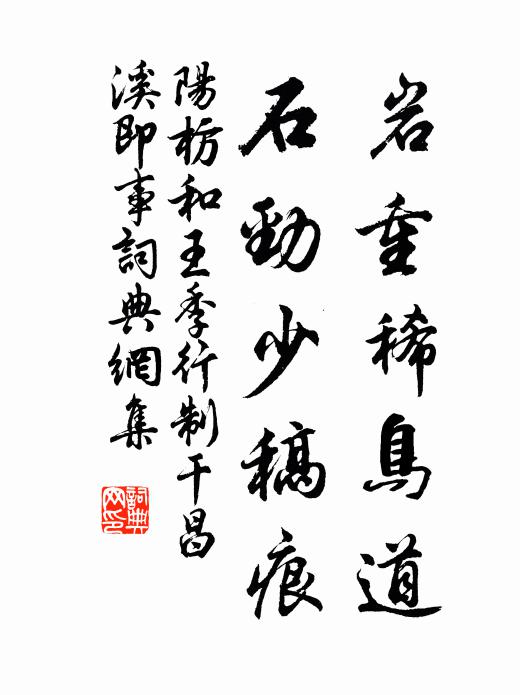 岩重稀鳥道
石勁少稿痕
陽枋和王季行制干昌
溪即事詞典網集
詞典网印